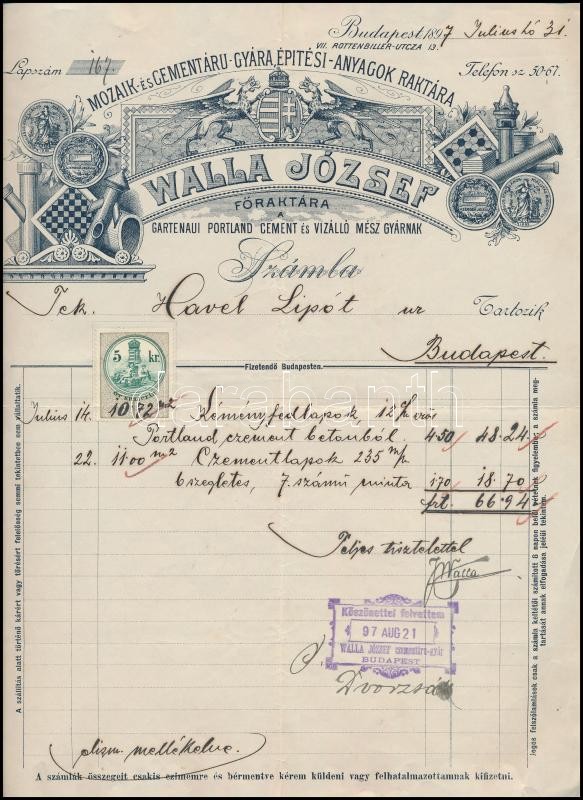 Budapest 1897 Julius hó 31
VII. ROTTENBILLER-UTCZA 13.
Lapszám 167.
Telefon sz 50-67.
MOZAIK-ÉS CEMENTÁRU-GYÁRA, ÉPITÉSI-ANYAGOK RAKTÁRA
WALLA JÓZSEF
FŐRAKTÁRA
A
GARTENAUI PORTLAND CEMENT ÉS VIZÁLLÓ MÉSZ GYÁRNAK
Számla
Tek. Havel Lipót ur Tartozik
Budapest.
Fizetendő Budapesten.
5 kr.
Julius 14. 10.72 m2 Kéményfedlapok 12 % erős
Portland czement betonból. 4.50 48.24
22. 11.00 m2 Czementlapok 235 m/m
6 szegletes, 7. számú minta 1.70 18.70
frt. 66.94
Teljes tisztelettel
JWalla
Köszönettel felvettem
97 AUG 21
WALLA JÓZSEF czementárú-gyár
BUDAPEST
Dvorzsák
mellékelve.
A szállítás alatt történő kárért vagy törésért felelősség semmi tekintetben nem vállaltatik.
Jogos felszólamlások csak a számla keltétől számított 8 napon belül vétetnek figyelembe, a számla megtartását annak elfogadása jeléül tekintem.
A számlák összegeit csakis czimemre és bérmentve kérem küldeni vagy felhatalmazottamnak kifizetni.
darabanth